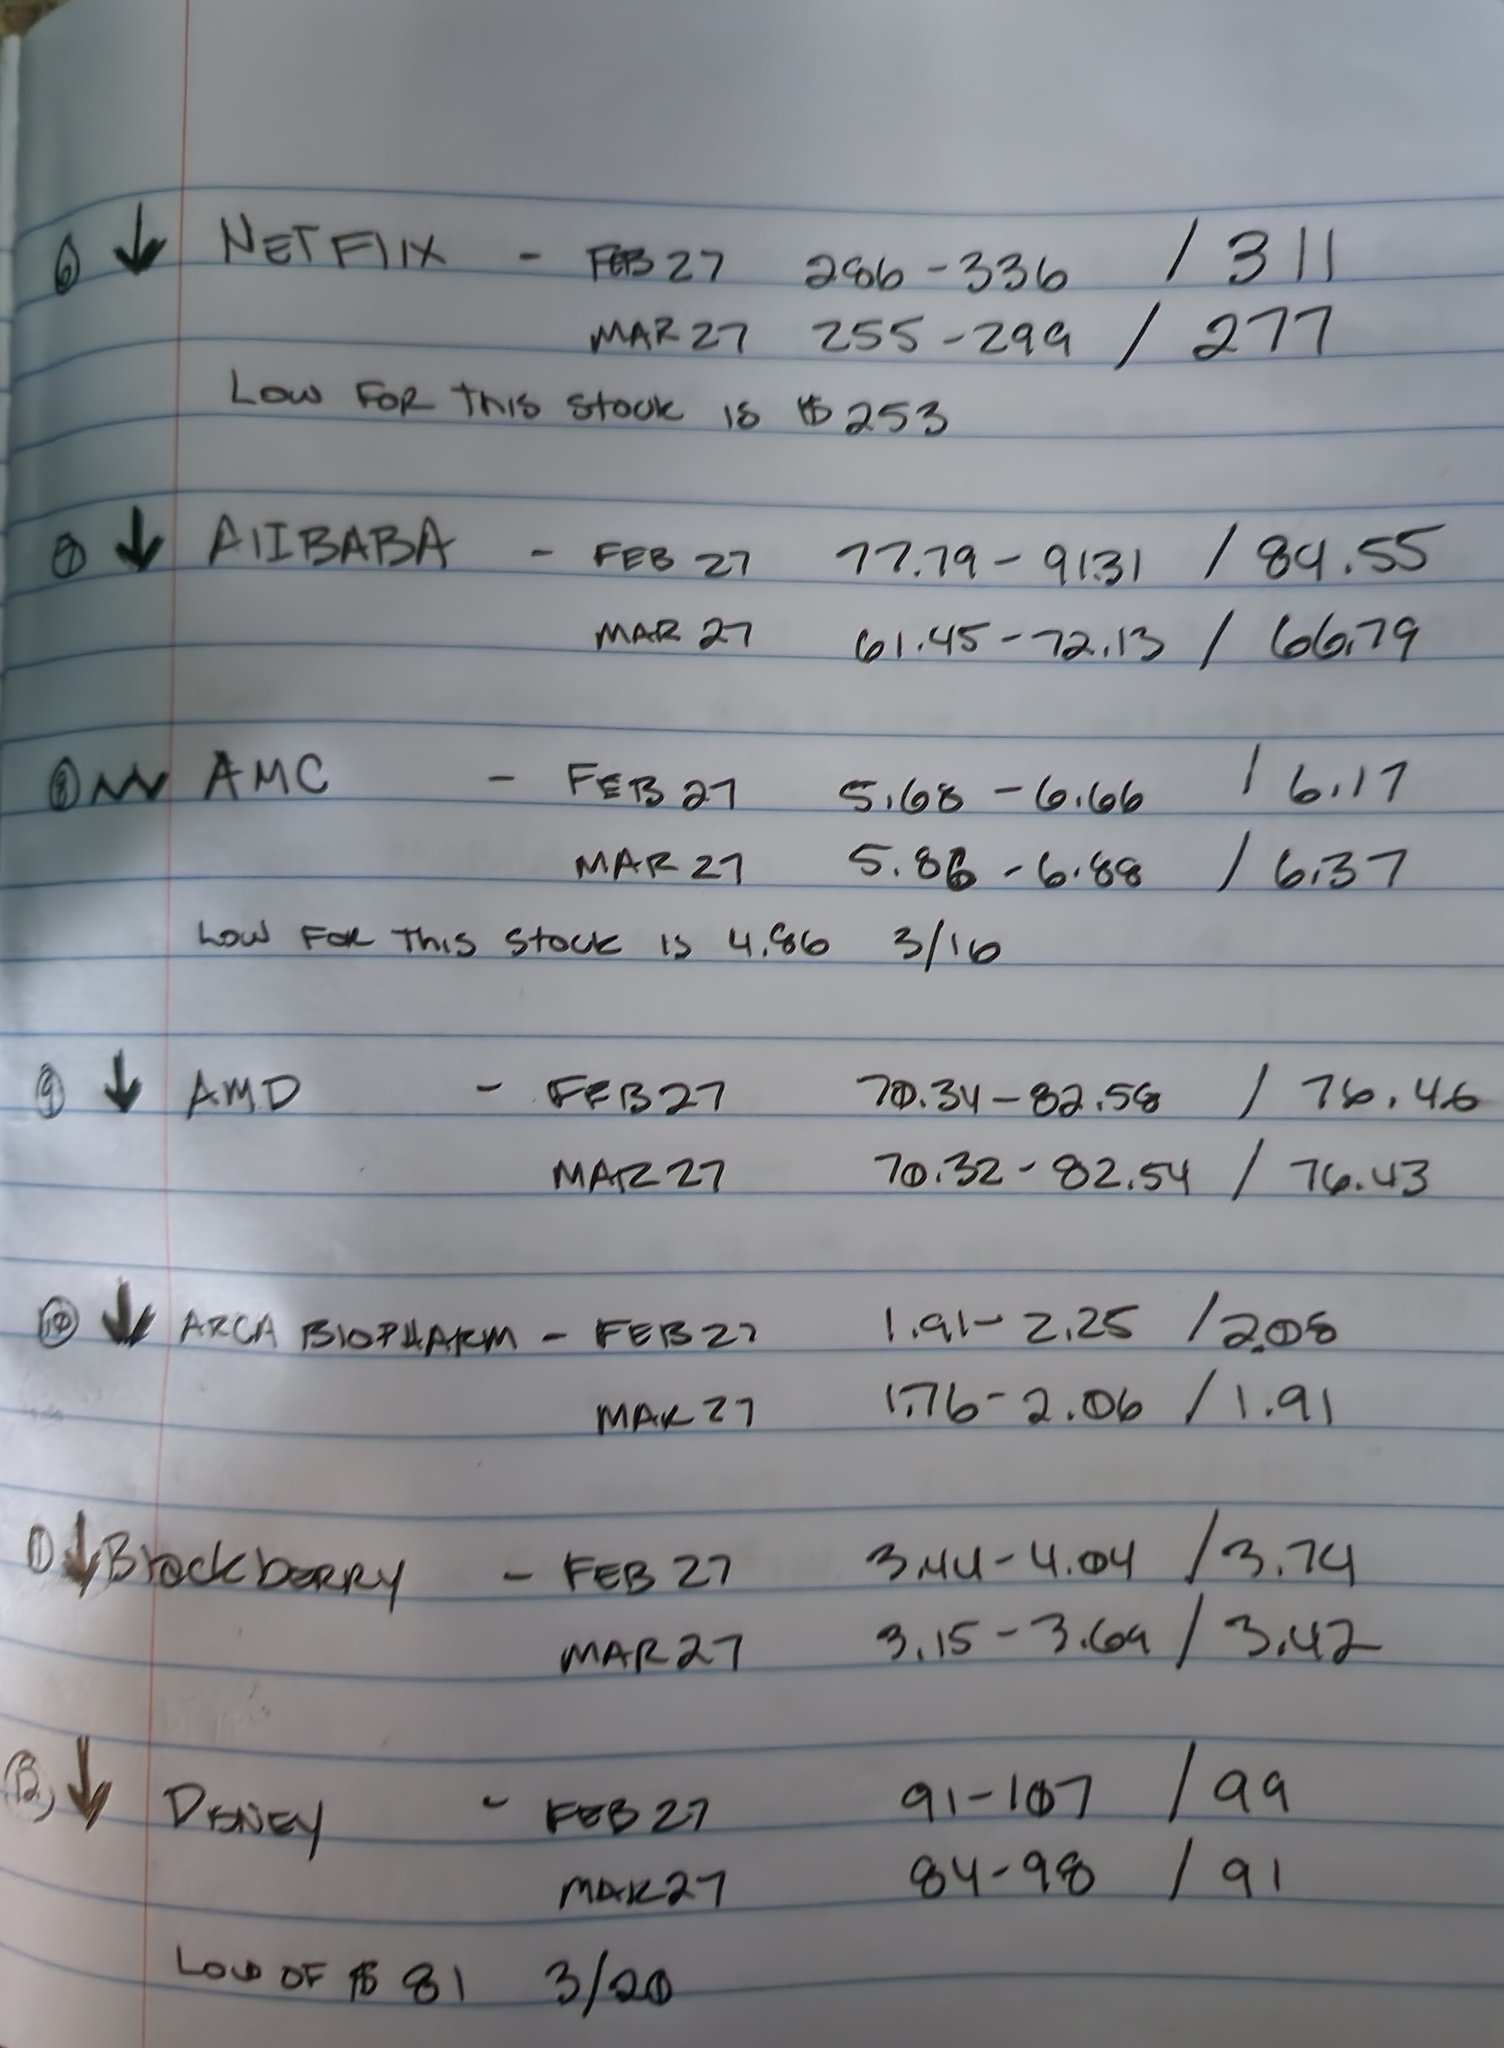 6 ↓ NETFLIX - FEB 27 286-336 / 311
MAR 27 255-299 / 277
LOW FOR THIS STOCK IS $253
7 ↓ ALIBABA - FEB 27 77.79-91.31 / 84.55
MAR 27 61.45-72.13 / 66.79
8 AMC - FEB 27 5.68-6.66 / 6.17
MAR 27 5.86-6.88 / 6.37
LOW FOR THIS STOCK IS 4.86 3/16
9 ↓ AMD - FEB 27 70.34-82.58 / 76.46
MAR 27 70.32-82.54 / 76.43
10 ↓ ARCA BIOPHARM - FEB 27 1.91-2.25 / 2.08
MAR 27 1.76-2.06 / 1.91
↓ Blackberry - FEB 27 3.44-4.04 / 3.74
MAR 27 3.15-3.69 / 3.42
12 ↓ DISNEY - FEB 27 91-107 / 99
MAR 27 84-98 / 91
LOW OF $81 3/20